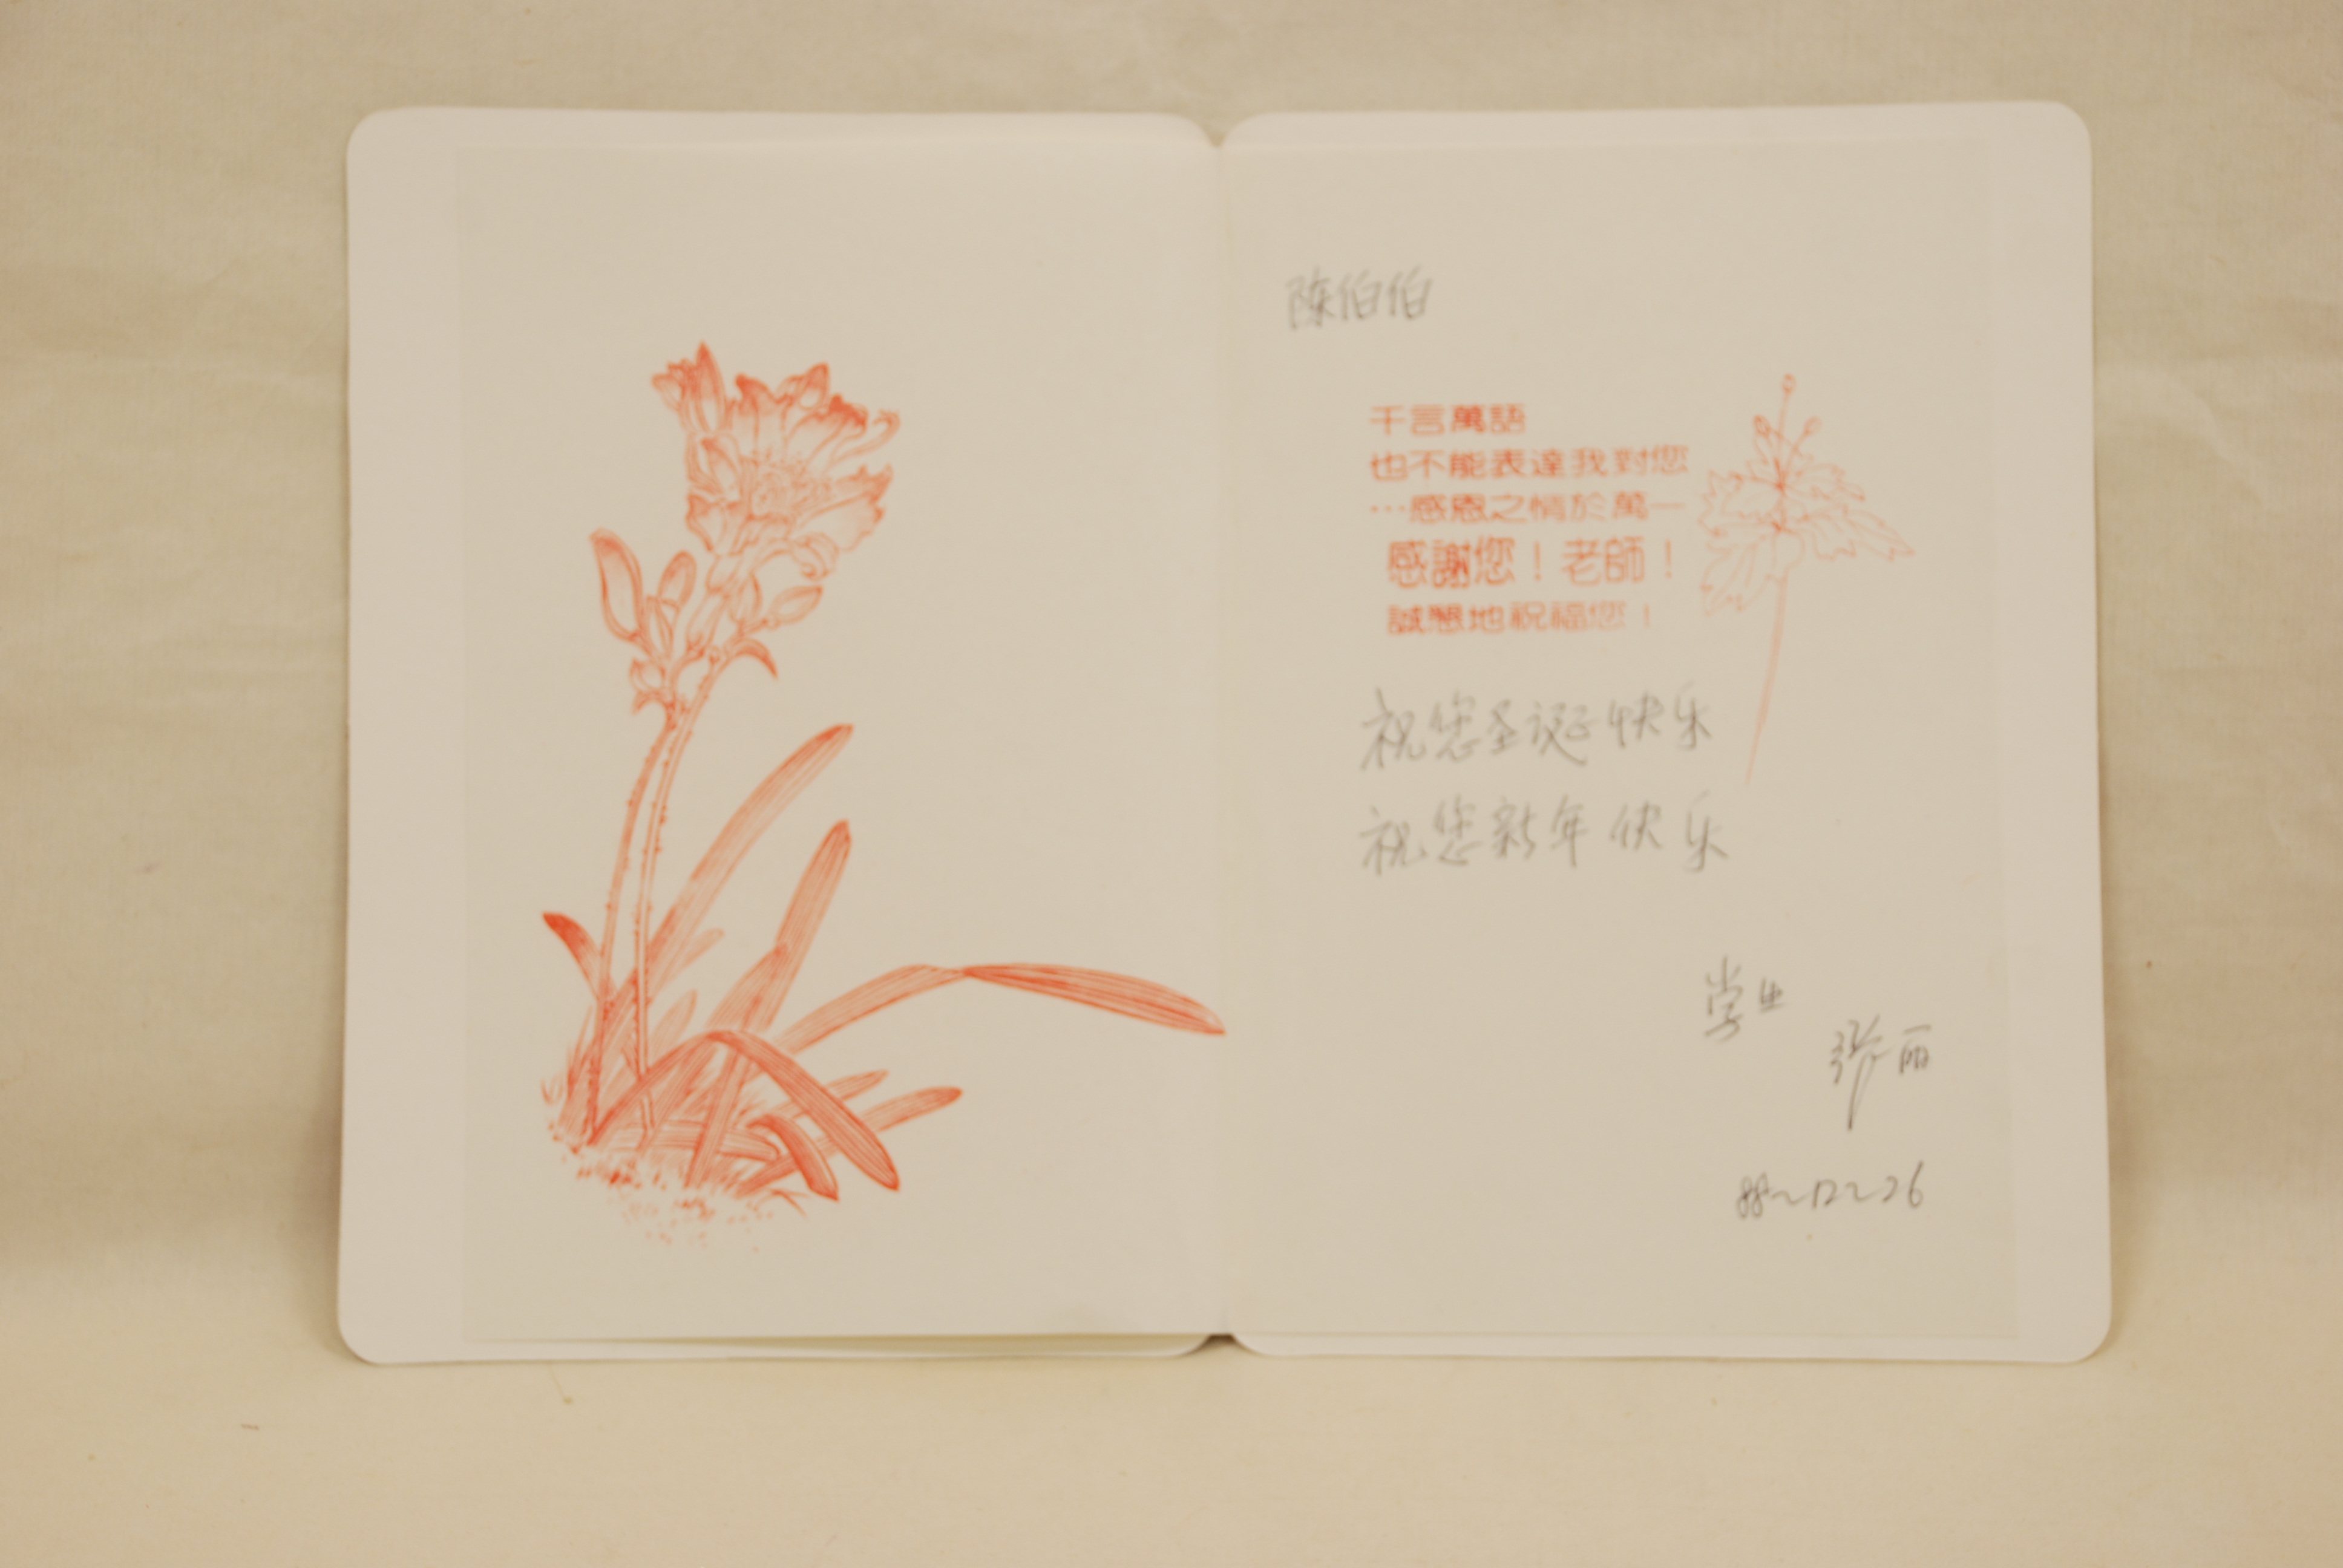 陈伯伯
千言萬語
也不能表達我對您
…感恩之情於萬一
感謝您！老師！
誠懇地祝福您！
祝您圣诞快乐
祝您新年快乐
学生
张丽
88~12~26